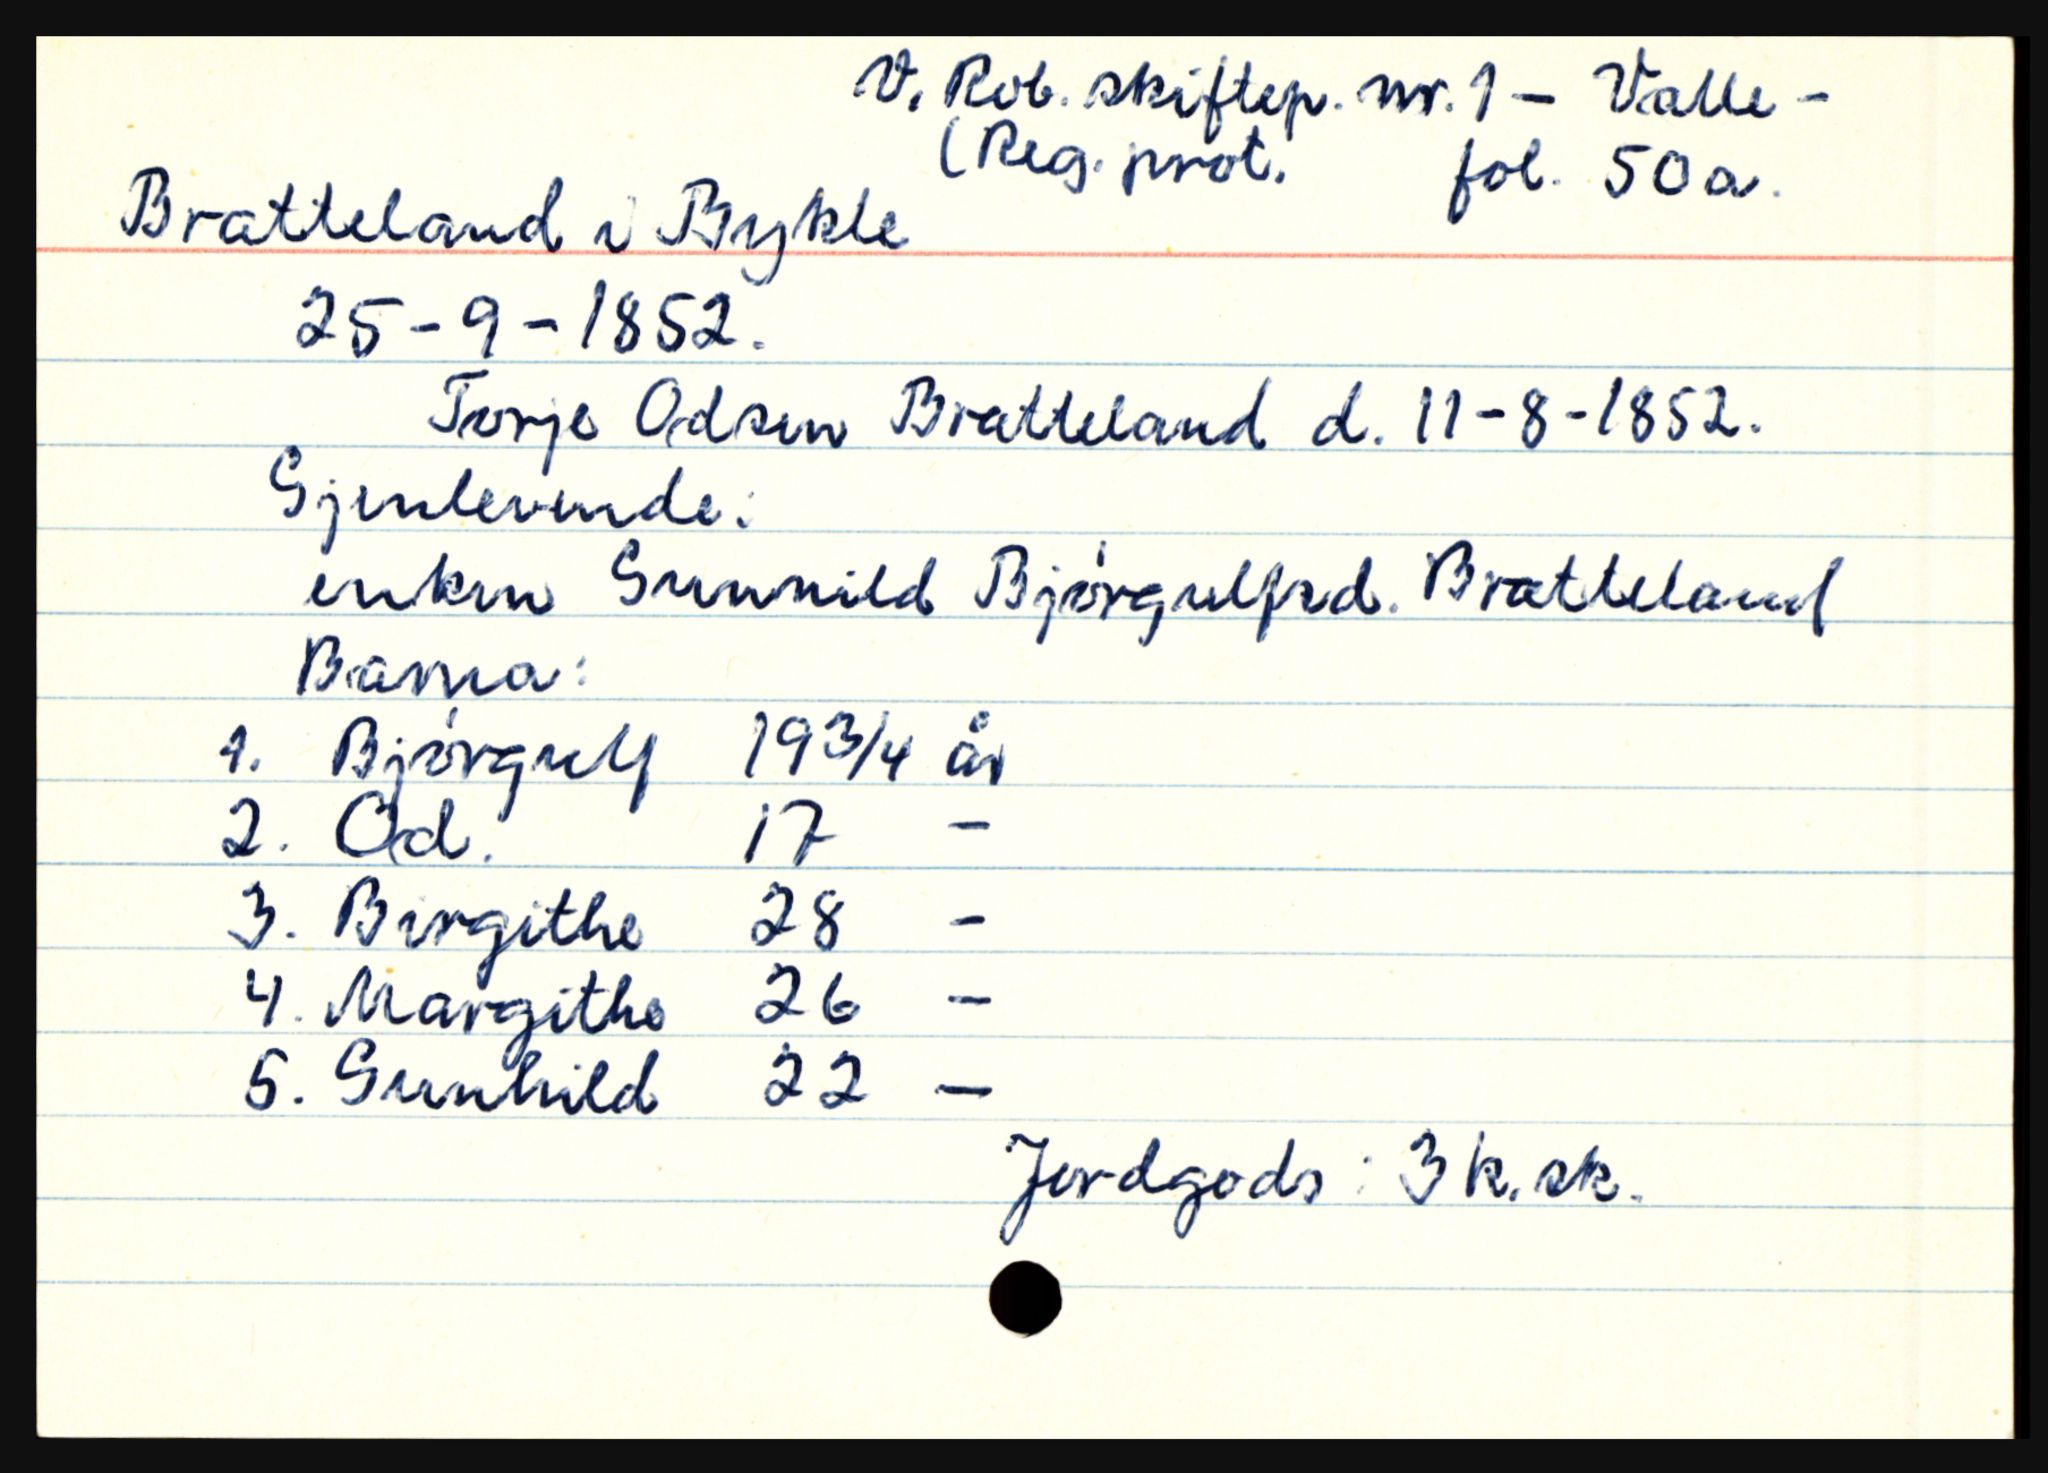 V. Rob. skiftep. nr. 1 - Valle -
(Reg. prot. fol. 50a.
Bratteland i Bykle
25-9-1852.
Torje Odsen Bratteland d. 11-8-1852.
Gjenlevende:
enken Gunnild Bjørgulfsd. Bratteland
Barna:
1. Bjørgulf 19 3/4 år
2. Od. 17 -
3. Birgithe 28 -
4. Margithe 26 -
5. Gunhild 22 -
Jordgods: 3 k. sk.